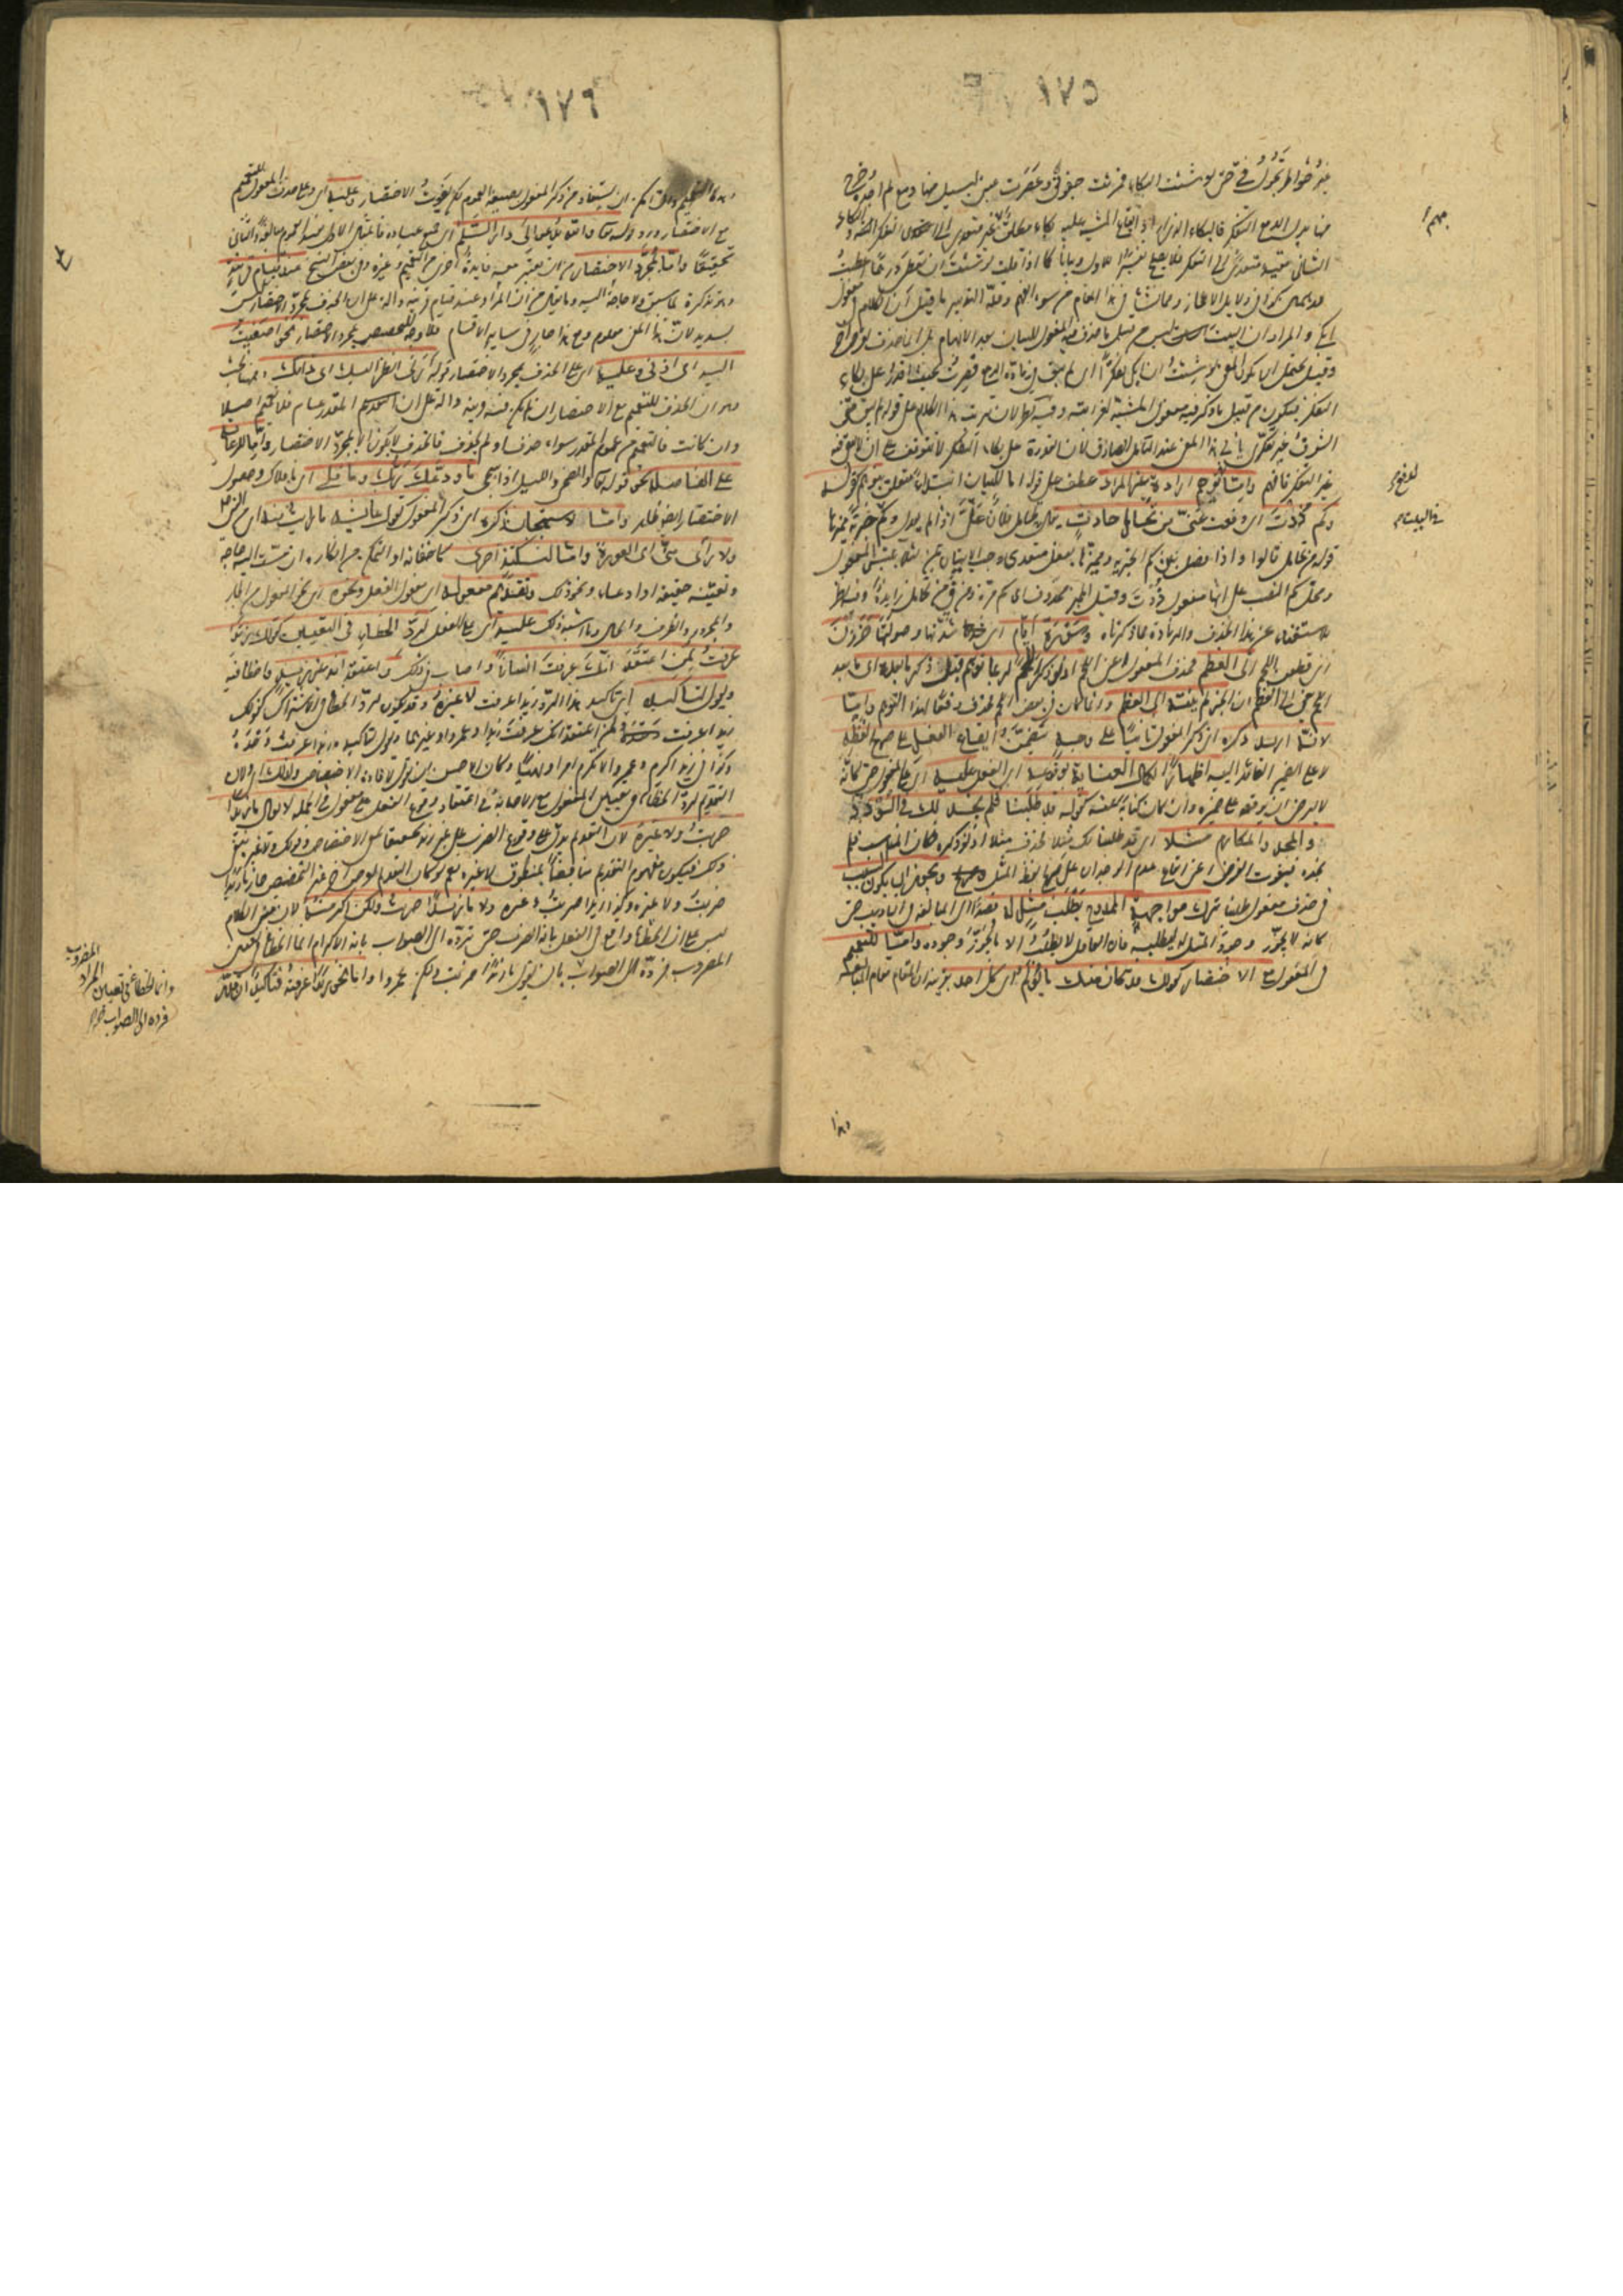 ١٧٥
غير خواطر تجول فيّ حتى لو شئت البكاء فمريت جفوني وعصرت عيني ليسيل منها دمع لم اجده وخرج
منها بدل الدمع التفكر فالبكاء الذي اراد ايقاع المشية عليه بكاء مطلق غير متعدي الى التفكر البتة والبكاء
الثاني مقيد متعدي الى التفكر فلا يصلح تفسيرا للاول وبيانا كما اذا قلت لو شئت ان تعطي درهما اعطيت
درهمين كذا في دلايل الاعجاز ومما نشأ في هذا المقام من سوء الفهم وقلة التدبر ما قيل ان الكلام في مفعول
ابكي والمراد ان البيت ليس من قبيل ما حذف فيه المفعول للبيان بعد الابهام بل انما حذف لغرض آخر
وقيل يحتمل ان يكون المعنى لو شئت ان ابكي تفكرا اي لم يبق في مادة الدمع فصرت بحيث اقدر على بكاء
التفكر فيكون من قبيل ما ذكر فيه مفعول المشية لغرابته وفيه نظر لان ترتب هذا الكلام على قوله لم يبق مني
الشوق غير تفكري يأبى هذا المعنى عند التأمل الصادق لان القدرة على بكاء التفكر لا تتوقف على ان لا يبقى فيه
غير التفكر فافهم واما لدفع توهم ارادة غير المراد عطف على قوله اما للبيان ابتداء متعلق بتوهم كقوله
وكم ذدت اي دفعت عني من تحامل حادث يقال تحامل فلان عليّ اذا لم يعدل وكم خبرية مميزها
قوله من تحامل قالوا واذا فصل بين كم الخبرية ومميزها بفعل متعدي وجب الاتيان بمن لئلا يلتبس بالمفعول
ومحل كم النصب على انها مفعول ذدت وقيل المميز محذوف اي كم مرة ومن في من تحامل زايدة وفيه نظر
للاستغناء عن هذا الحذف والزيادة بما ذكرناه وسورة ايام اي شدتها وصولتها حززن
اي قطعن اللحم الى العظم فحذف المفعول اعني اللحم اذ لو ذكر اللحم لربما توهم قبل ذكر ما بعده اى ما بعد
اللحم يعني الى العظم ان الحز لم ينته الى العظم وانما كان في بعض اللحم فحذف دفعا لهذا التوهم واما
لانه اريد ذكره اي ذكر المفعول ثانيا على وجه يتضمن ايقاع الفعل على صريح لفظه
لا على الضمير العائد اليه اظهارا لكمال العناية بوقوعه اي الفعل عليه اي على المفعول حتى كانه
لا يرضى ان يوقعه على ضميره وان كان كناية عنه كقوله قد طلبنا فلم نجد لك في السؤدد
والمجد والمكارم مثلا اي قد طلبنا لك مثلا فحذف مثلا اذ لو ذكره لكان المناسب فلم
نجده فيفوت الغرض اعني ايقاع عدم الوجدان على صريح لفظ المثل ويجوز ان يكون السبب
في حذف مفعول طلبنا ترك مواجهة الممدوح بطلب مثل له قصدا الى المبالغة في التأديب حتى
كانه لا يجوز وجود المثل له ليطلبه فان العاقل لا يطلب الا ما يجوز وجوده واما للتعميم
في المفعول مع الاختصار كقولك قد كان منك ما يؤلم اي كل احد بقرينة ان المقام مقام المبالغة
لدفع
في البيت
١٧٦
وهذا التعميم وان امكن ان يستفاد من ذكر المفعول بصيغة العموم لكن يفوت الاختصار وعليه اي وعلى حذف المفعول للتعميم
مع الاختصار ورد قوله تعالى والله يدعو الى دار السلام اي جميع عباده فالمثال الاول يفيد العموم مبالغة والثاني
تحقيقا واما لمجرد الاختصار من غير ان يعتبر معه فايدة اخرى من التعميم وغيره وفي بعض النسخ عند قيام قرينة
وهو تذكرة لما سبق ولا حاجة اليه وما يقال من ان المراد عند قيام قرينة دالة على ان الحذف لمجرد الاختصار ليس
بسديد لان هذا المعنى معلوم ومع هذا جار في ساير الاقسام فلا وجه للتخصيص بمجرد الاختصار نحو اصغيت
اليه اي اذني وعليه اي على الحذف لمجرد الاختصار قوله ارني انظر اليك اي ذاتك وههنا بحث
وهو ان الحذف للتعميم مع الاختصار ان لم يكن فيه قرينة دالة على ان المقدر عام فلا تعميم اصلا
وان كانت فالتعميم من عموم المقدر سواء حذف او لم يحذف فالحذف لا يكون الا لمجرد الاختصار واما للرعاية
على الفاصلة نحو قوله تعالى والضحى والليل اذا سجى ما ودعك ربك وما قلى اي ما قلاك وحصول
الاختصار ايضا ظاهر واما لاستهجان ذكره اي ذكر المفعول كقول عايشة ما رأيت منه اي من النبي
ولا رأى مني اي العورة واما لنكتة اخرى كاخفائه او التمكن من انكاره ان مست اليه حاجة
وتعينه حقيقة او ادعاء ونحو ذلك وتقديم مفعوله اي مفعول الفعل ونحوه اي نحو المفعول من الجار
والمجرور والظرف والحال وما اشبه ذلك عليه اي على الفعل لرد الخطاء في التعيين كقولك زيدا
عرفت لمن اعتقد انك عرفت انسانا واصاب في ذلك واعتقد انه غير زيد واخطأ فيه
وتقول لتأكيده اي تأكيد هذا الرد زيدا عرفت لا غيره وقد يكون لرد الخطأ في الاشتراك كقولك
زيدا عرفت لمن اعتقد انك عرفت زيدا وعمروا وغيرهما وتقول لتأكيده زيدا عرفت وحده
وكذا في زيدا اكرم وعمروا لا تكرم امرا ونهيا وكان الاحسن ان يقول لافادة الاختصاص ولذلك اي ولان
التقديم لرد الخطأ في تعيين المفعول مع الاصابة في اعتقاد وقوع الفعل على مفعول في الجملة لا يقال ما زيدا
ضربت ولا غيره لان التقديم يدل على وقوع الضرب على غير زيد تحقيقا لمعنى الاختصاص وقولك ولا غيره ينفي
ذلك فيكون مفهوم التقديم مناقضا لمنطوق لا غيره نعم لو كان التقديم لغرض آخر غير التخصيص جاز ما زيدا
ضربت ولا غيره وكذا زيدا ضربت وغيره ولا ما زيدا ضربت ولكن اكرمته لان مبنى الكلام
ليس على ان الخطأ واقع في الفعل بانه الضرب حتى ترده الى الصواب بانه الاكرام انما الخطأ في تعيين
المضروب فرده الى الصواب بان يقول ما زيدا ضربت ولكن عمروا واما نحو زيدا عرفته فتأكيد ان قدر
المضروب
وانما الخطأ في تعيين المراد
فرده الى الصواب